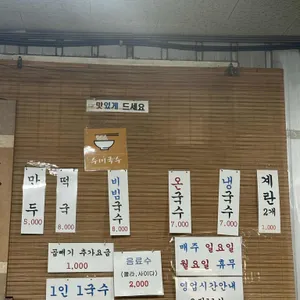 맛있게 드세요
만두
5,000
떡국
8,000
비빔국수
8,000
온국수
7,000
냉국수
7,000
계란
2개
1,000
곱빼기 추가요금
1,000
음료수
(콜라, 사이다)
2,000
매주 일요일
월요일 휴무
1인 1국수
영업시간안내